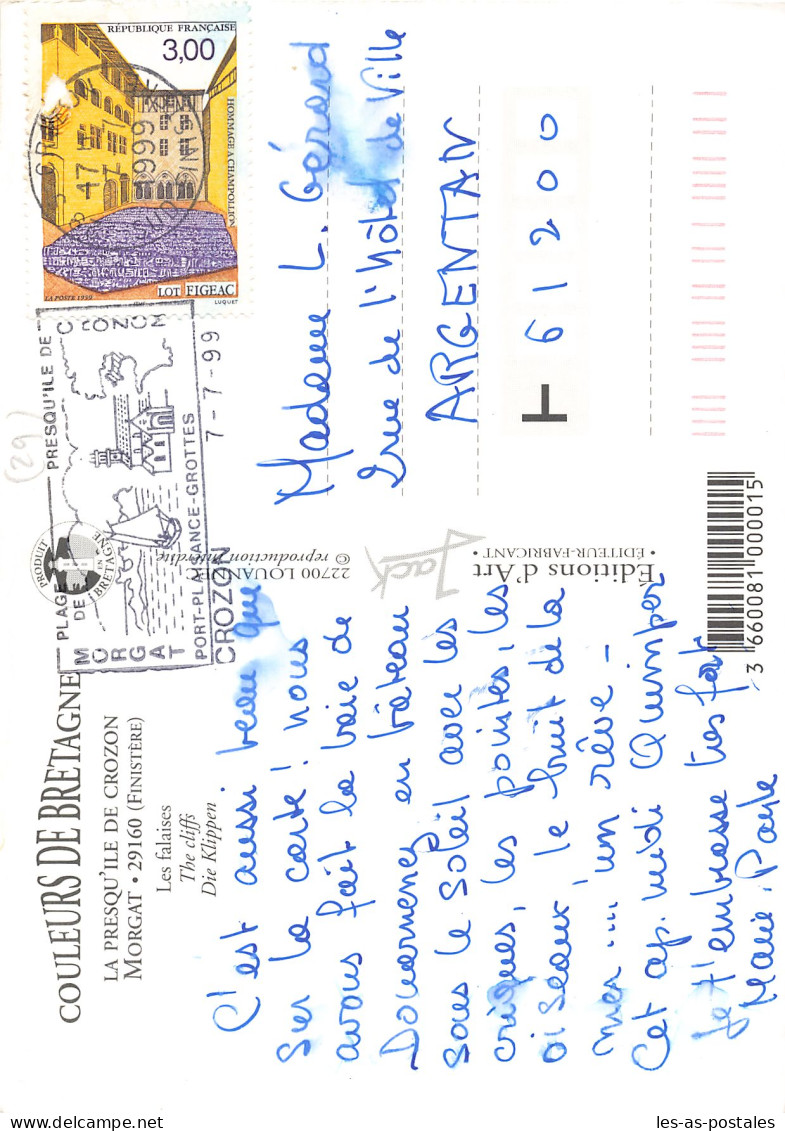 COULEURS DE BRETAGNE
LA PRESQU'ILE DE CROZON
MORGAT • 29160 (FINISTÈRE)
Les falaises
The cliffs
Die Klippen
C'est aussi beau que
sur la carte! nous
avons fait la baie de
Douarnenez en bâteau
sous le soleil avec les
criques, les pointes, les
oiseaux, le bruit de la
mer ... un rêve -
Cet ap. midi Quimper
Je t'embrasse très fort
Marie. Paule
PRODUIT EN BRETAGNE
22700 LOUANNEC
© reproduction interdite
Jack
Editions d'Art
• ÉDITEUR-FABRICANT •
3 660081 000015
PLAGE DES
PRESQU'ILE DE
CROZON
MORGAT
PORT-PLAISANCE-GROTTES
CROZON 7-7-99
RÉPUBLIQUE FRANÇAISE
3,00
HOMMAGE A CHAMPOLLION
LOT FIGEAC
LA POSTE 1999
LUQUET
17
7
1999
FINIST
(29)
Madame L. Gérard
2 rue de l'hôtel de Ville
ARGENTAN
61200
les-as-postales.com